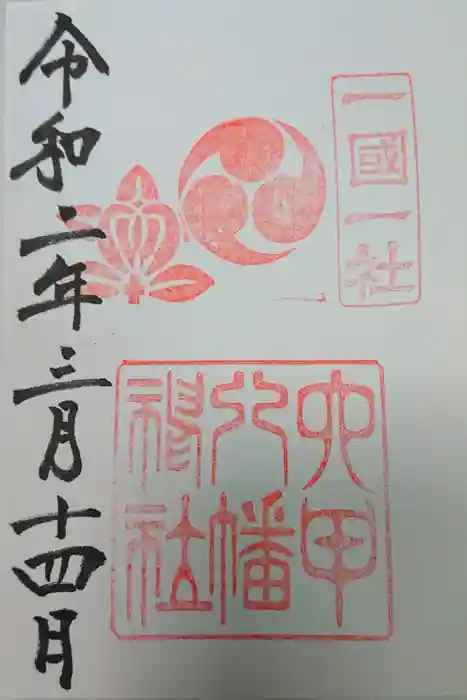 一國一社
六甲
八幡
神社
令和二年三月十四日